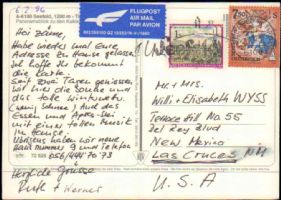 6.2.96
A-6100 Seefeld, 1200 m - T
Panoramablick zu den Kalkk
FLUGPOST
AIR MAIL
PAR AVION
Hoi zäme,
Habe wieder mal eure
Adresse zu Hause gelassen.
Ich hoffe ihr bekommt
die Karte.
Seit zwei Tagen geniessen
wir hier die Sonne und
das tolle Winterwetter.
Essen und Après-Ski
mit einer tollen Musik
im Hause.
Übrigens haben wir neue
Haus nummer 9 und Telefon
056/444 70 73
Herzliche Grüsse
Ruth + Werner
Mr. + Mrs.
Willi + Elisabeth WYSS
Terrace Hill No. 55
Del Rey Blvd
New Mexico
Las Cruces NM
U.S.A